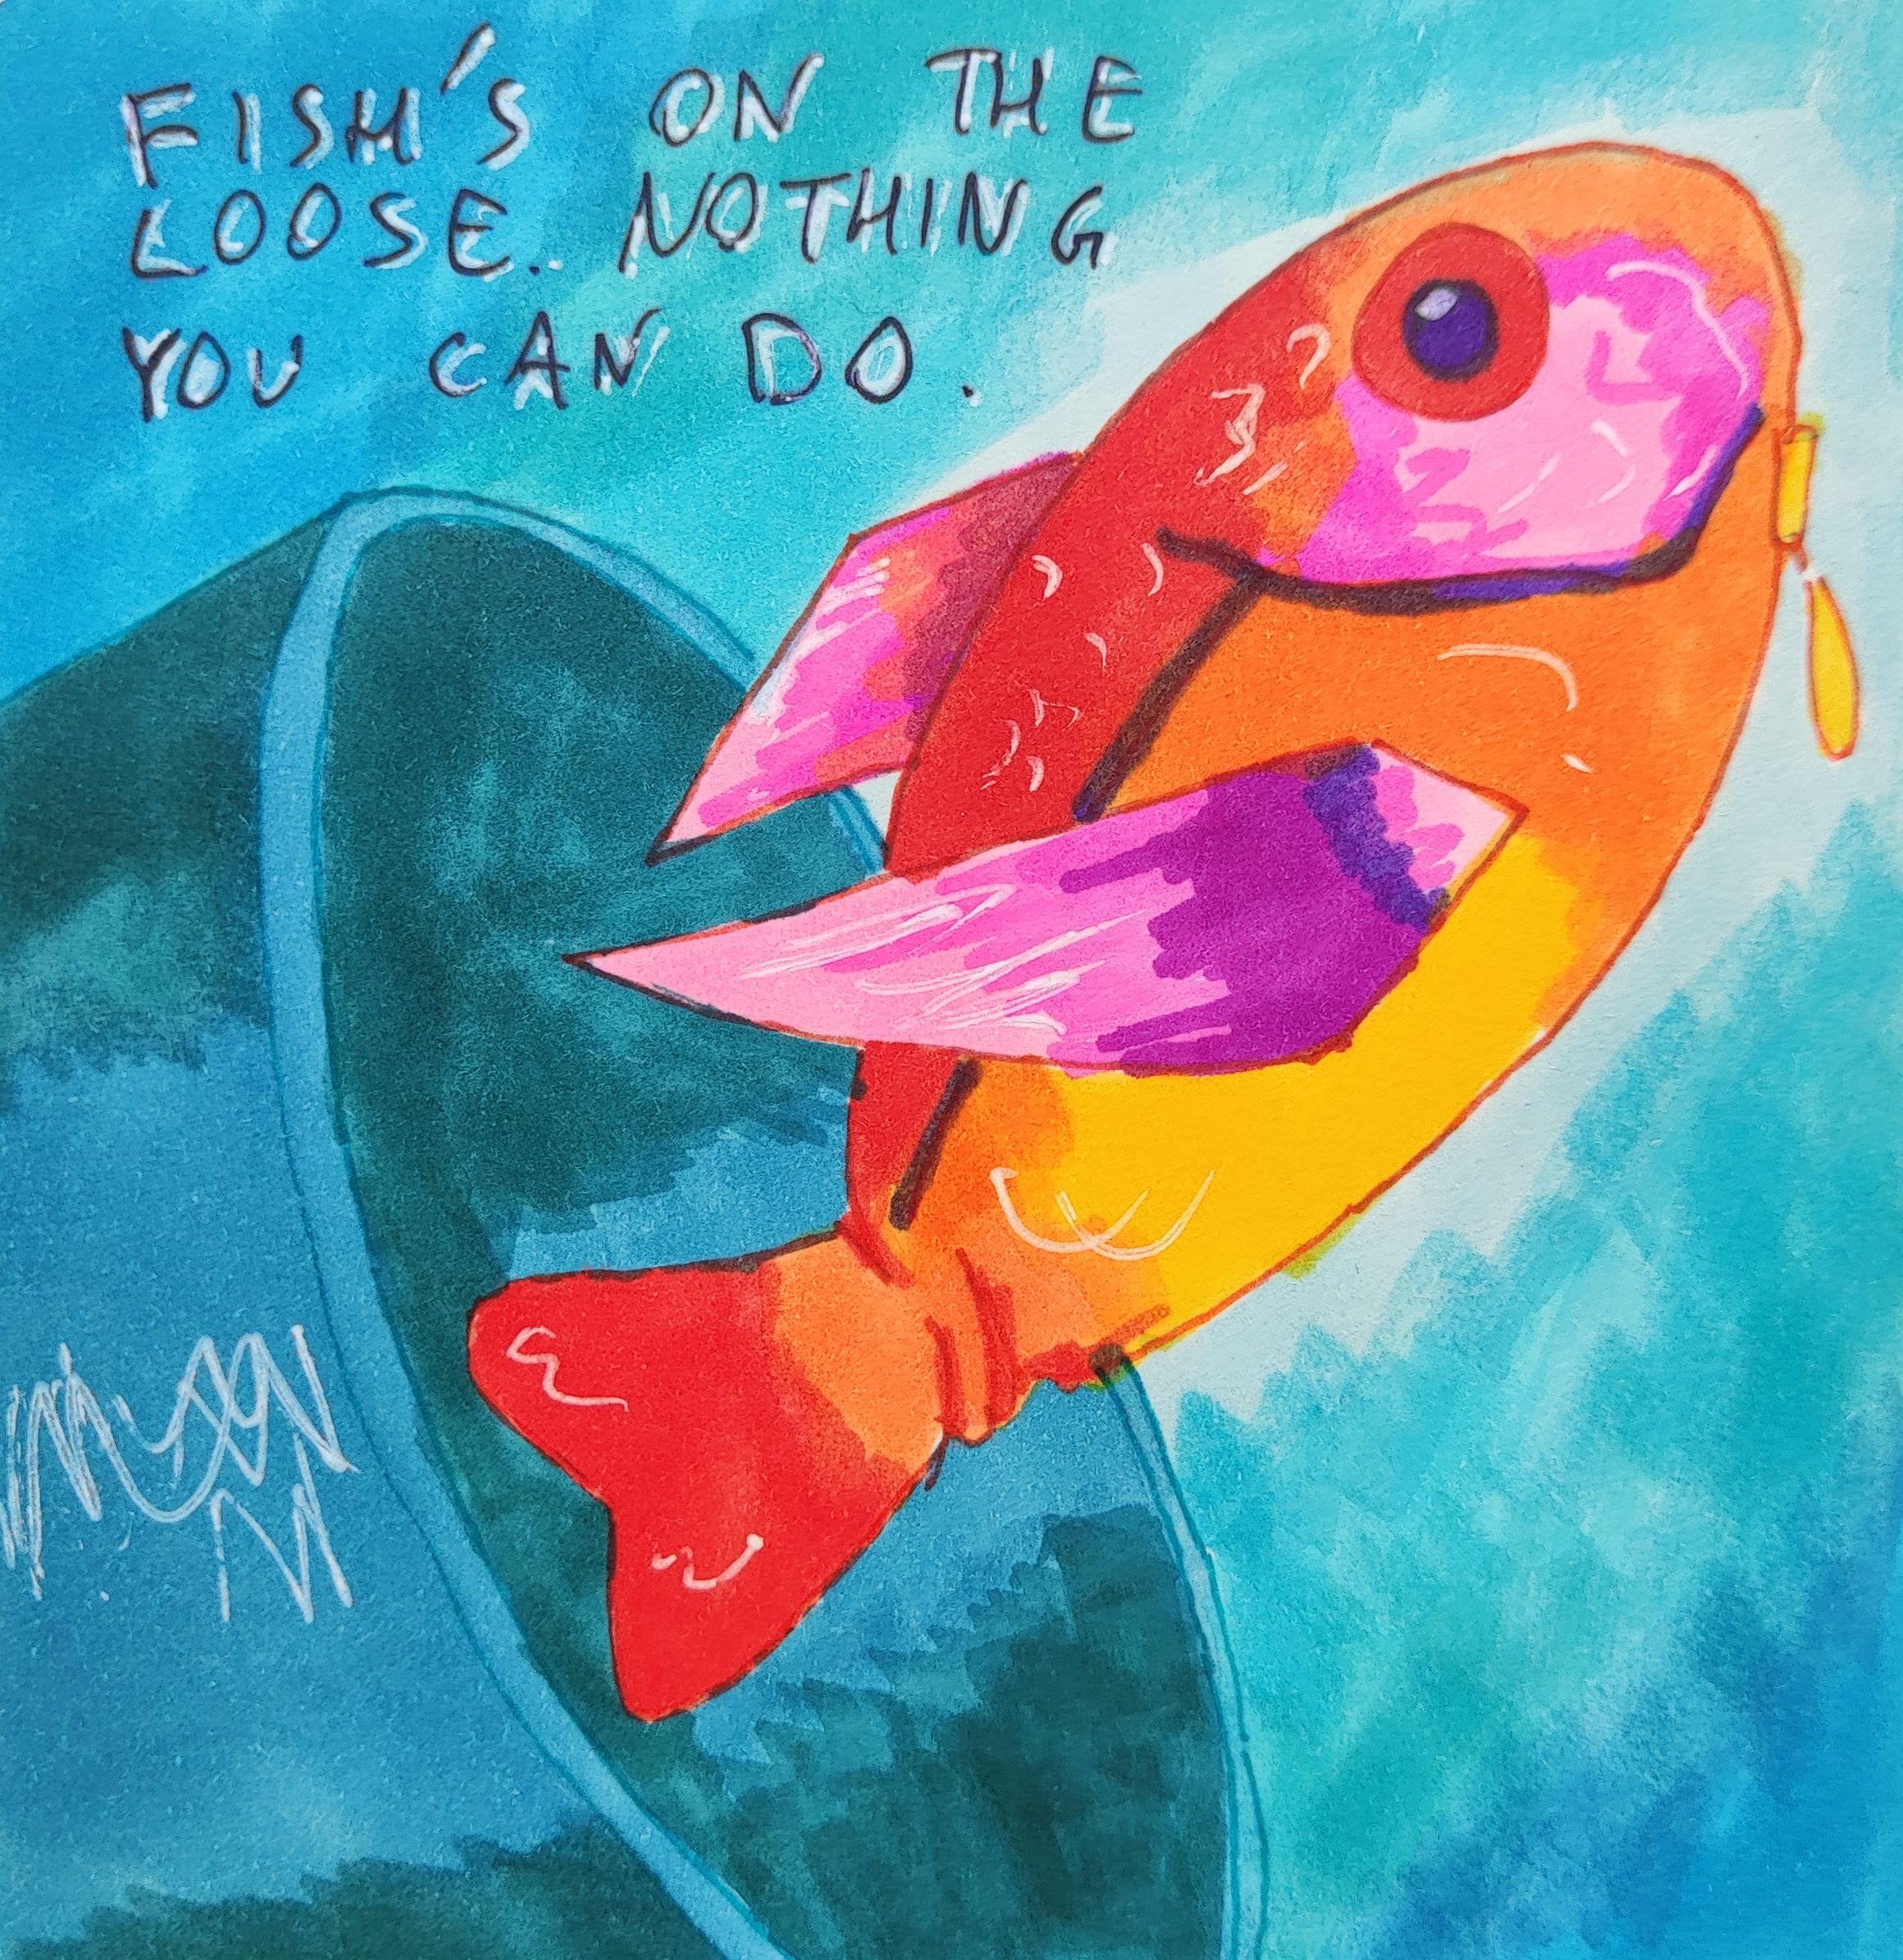 FISH'S ON THE
LOOSE. NOTHING
YOU CAN DO.